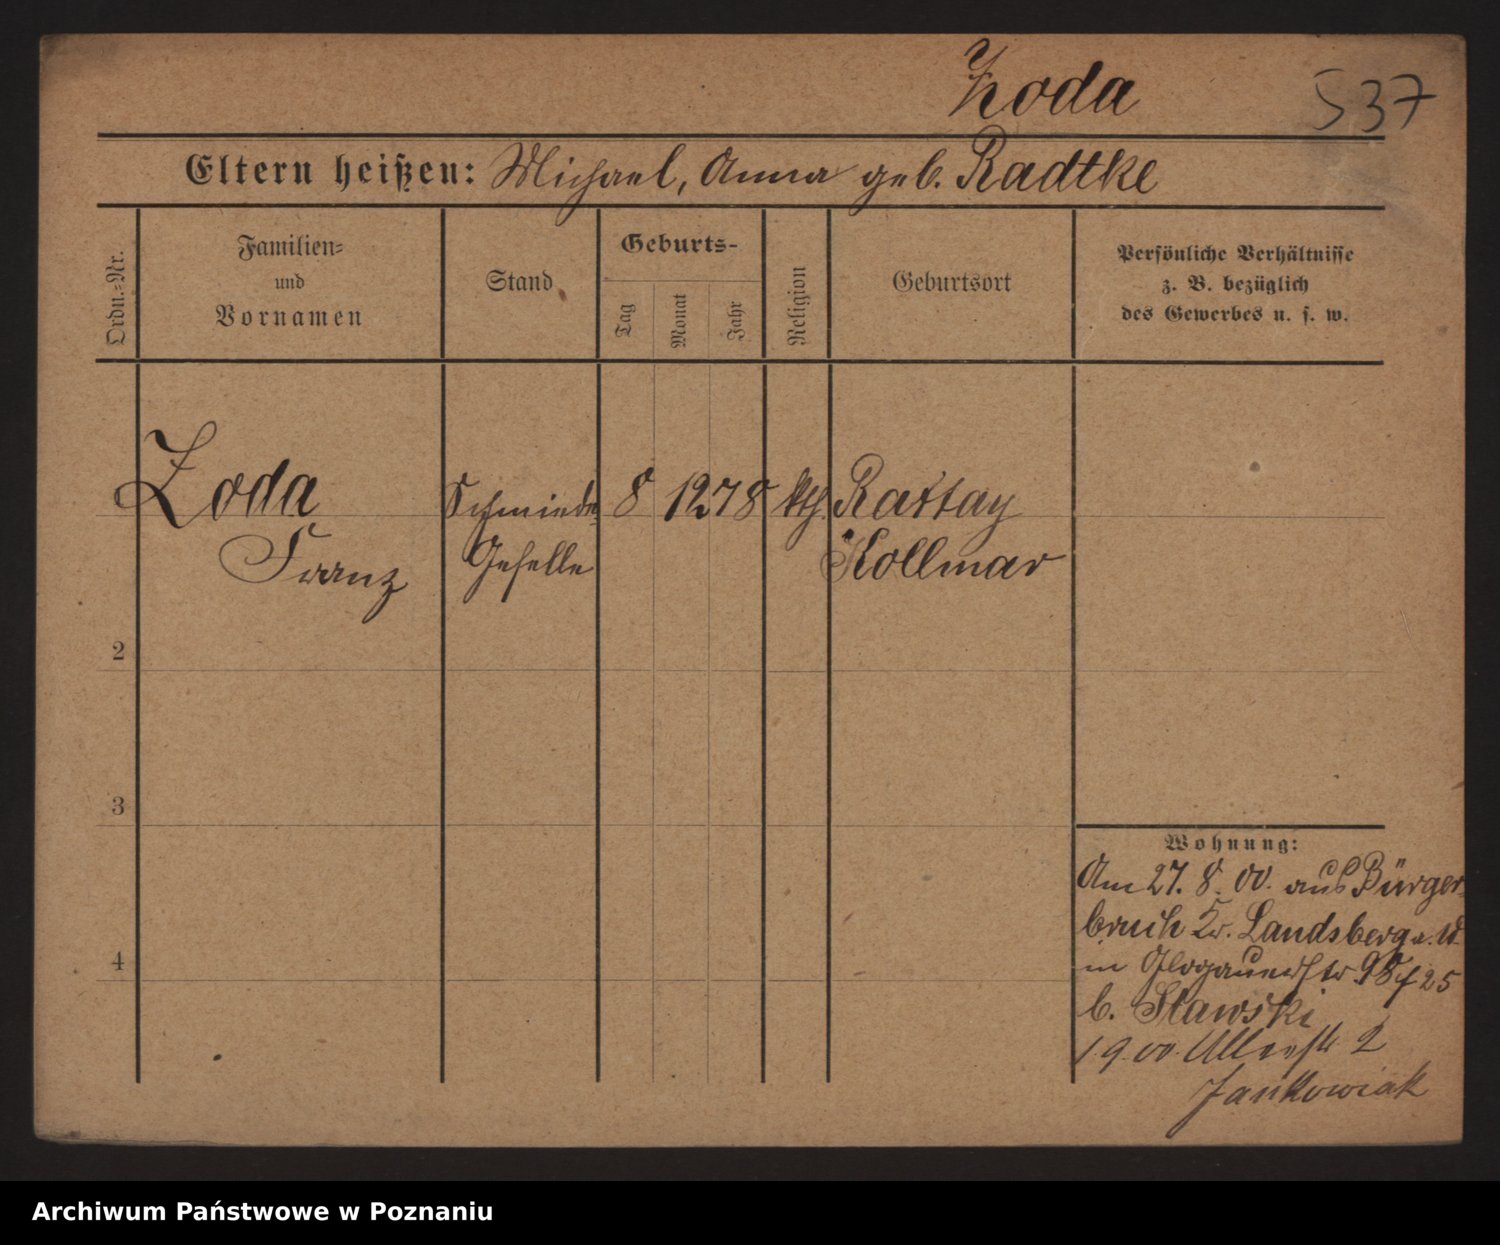 Zoda 537
Eltern heißen: Michael, Anna geb. Radtke
Ordn.-Nr.
Familien-
und
Vornamen
Stand
Geburts-
Tag
Monat
Jahr
Religion
Geburtsort
Persönliche Verhältnisse
z. B. bezüglich
des Gewerbes u. s. w.
Zoda Schmiede- 8 12 78 kth. Rattay
Franz Geselle Kollmar
2
3
4
Wohnung:
Am 27. 8. 00. aus Bürger-
bruch Kr. Landsberg a. W.
in Glogauerstr 98 f 25
b. Stawski
1. 9. 00. 2
Jankowiak
Archiwum Państwowe w Poznaniu